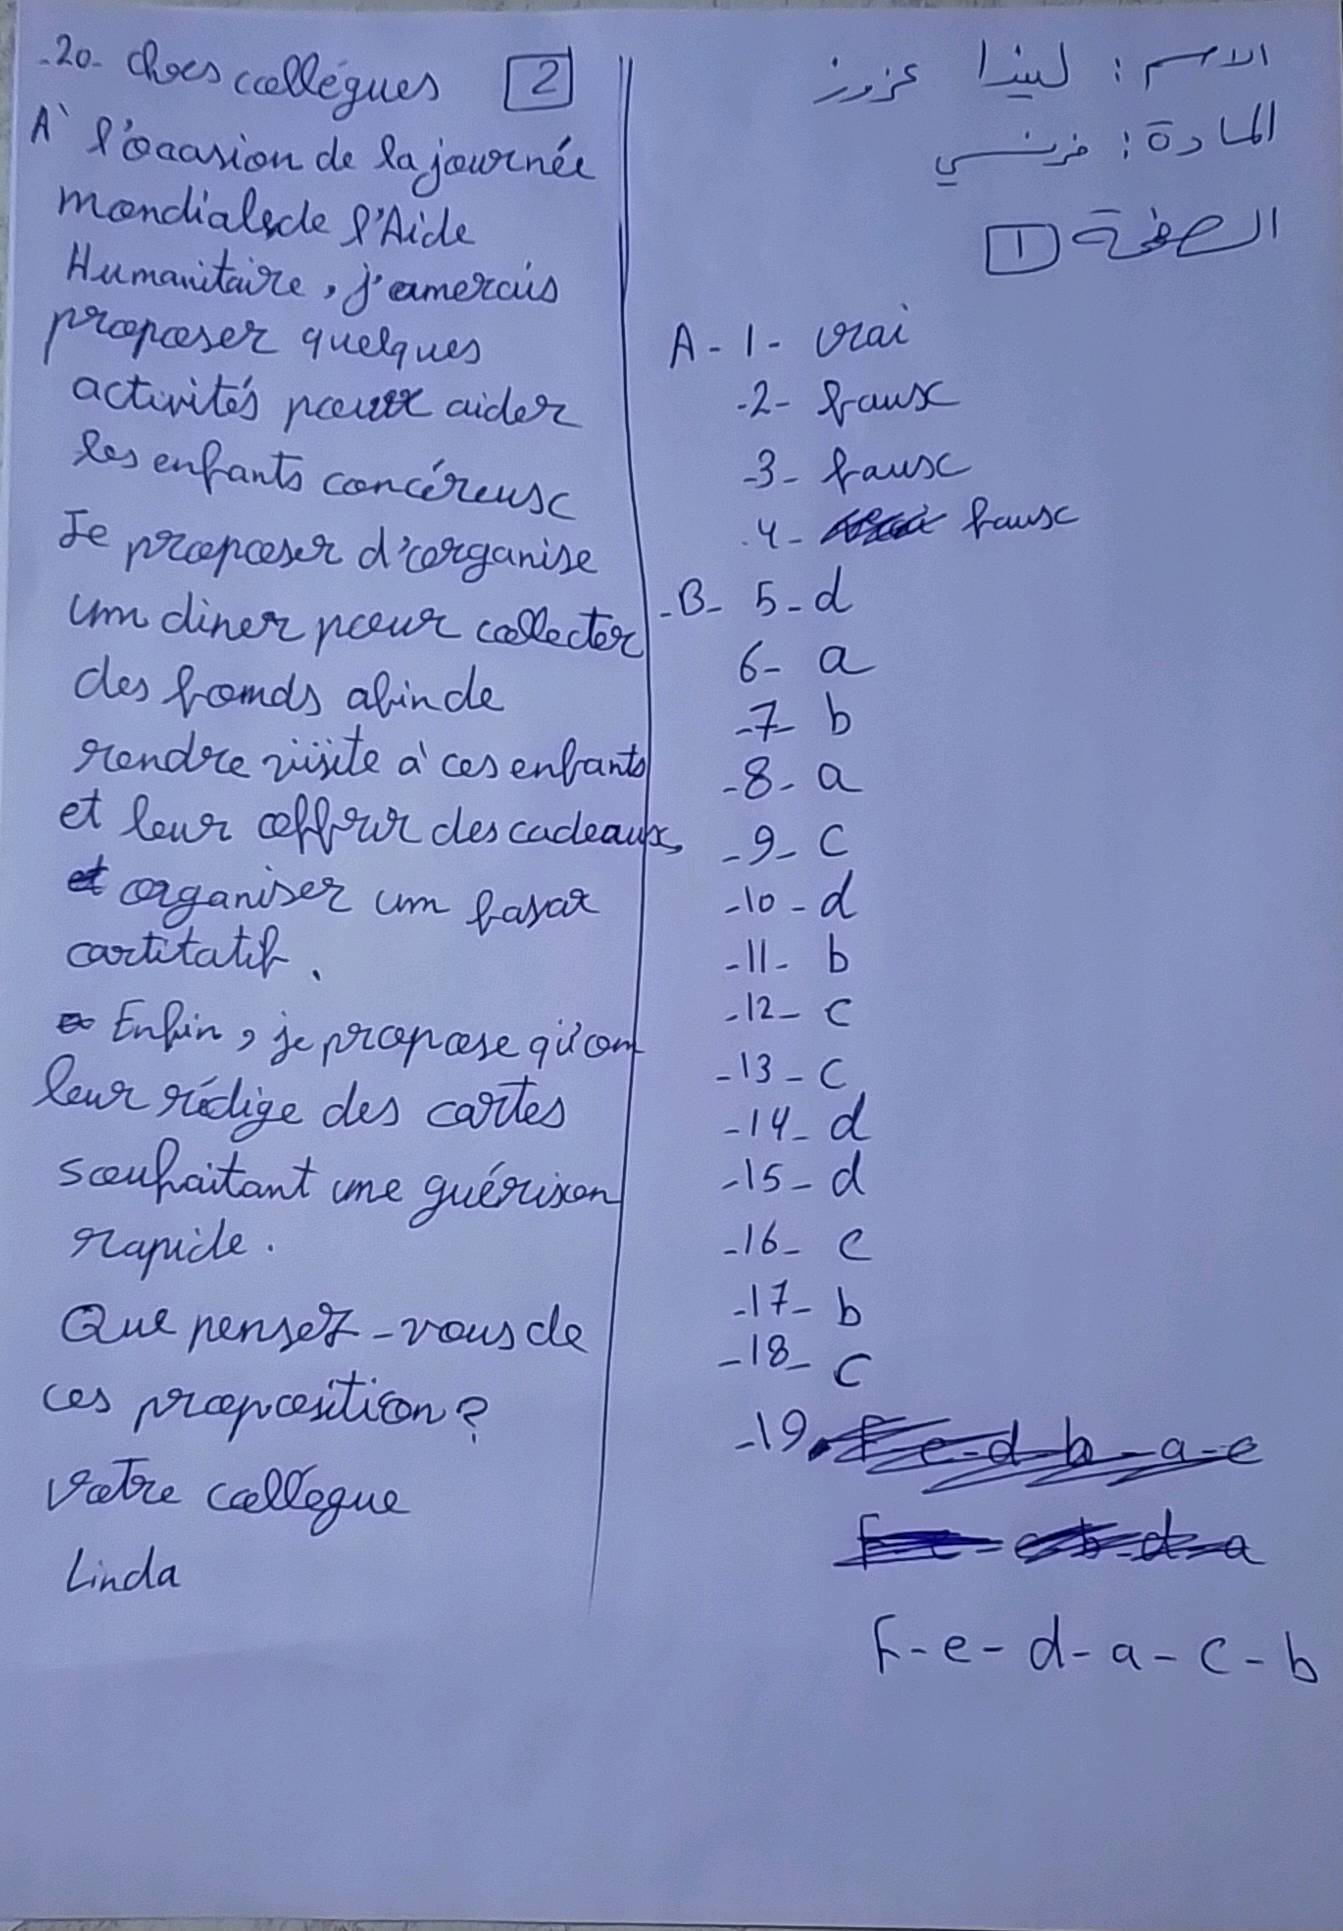 الاسم : ليندا عزوز
المادة : فرنسي
الصفحة 1
A - 1 - vrai
-2- faux
-3- faux
-4- faux
-B- 5-d
6- a
-7- b
-8- a
-9- c
-10-d
-11- b
-12- c
-13-c
-14-d
-15-d
-16- c
-17- b
-18- c
-19
F-e-d-a-c-b
-20- Chers collégues 2
A` l'occasion de la journée
mondiale de l'Aide
Humanitaire, j'amerais
proposer quelques
activités pour aider
les enfants concéreux
Je proposer d'organise
un diner pour collecter
des fonds afin de
rendre visite à ces enfants
et leur offrir des cadeaux,
et organiser un basar
cartitatif.
Enfin, je propose qu'on
leur rédige des cartes
souhaitant une guérison
rapide.
Que pensez-vous de
ces proposition?
Votre collégue
Linda